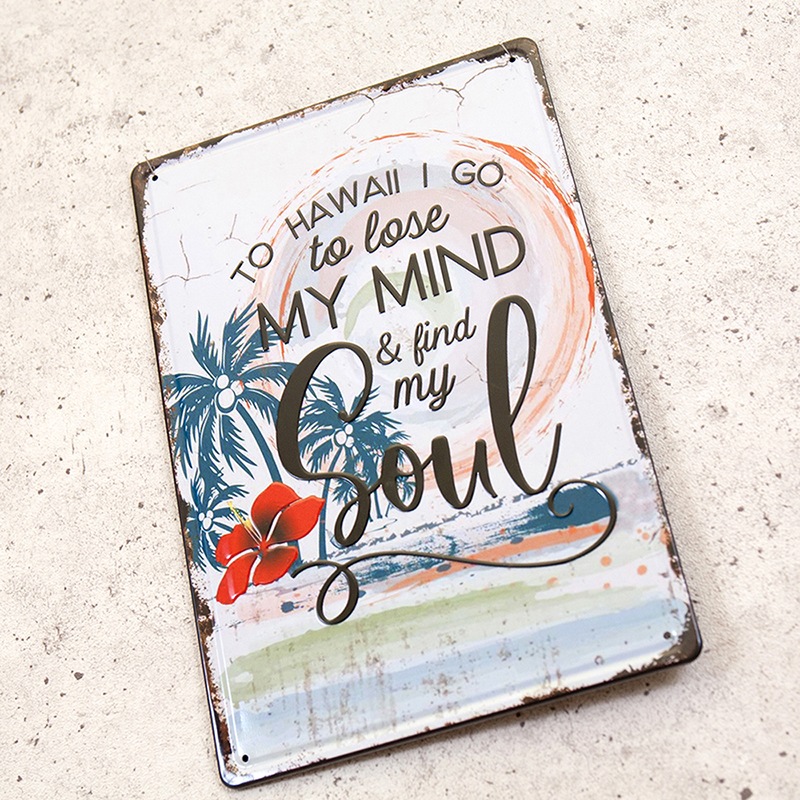 TO HAWAII I GO
to lose
MY MIND
& find
my
Soul